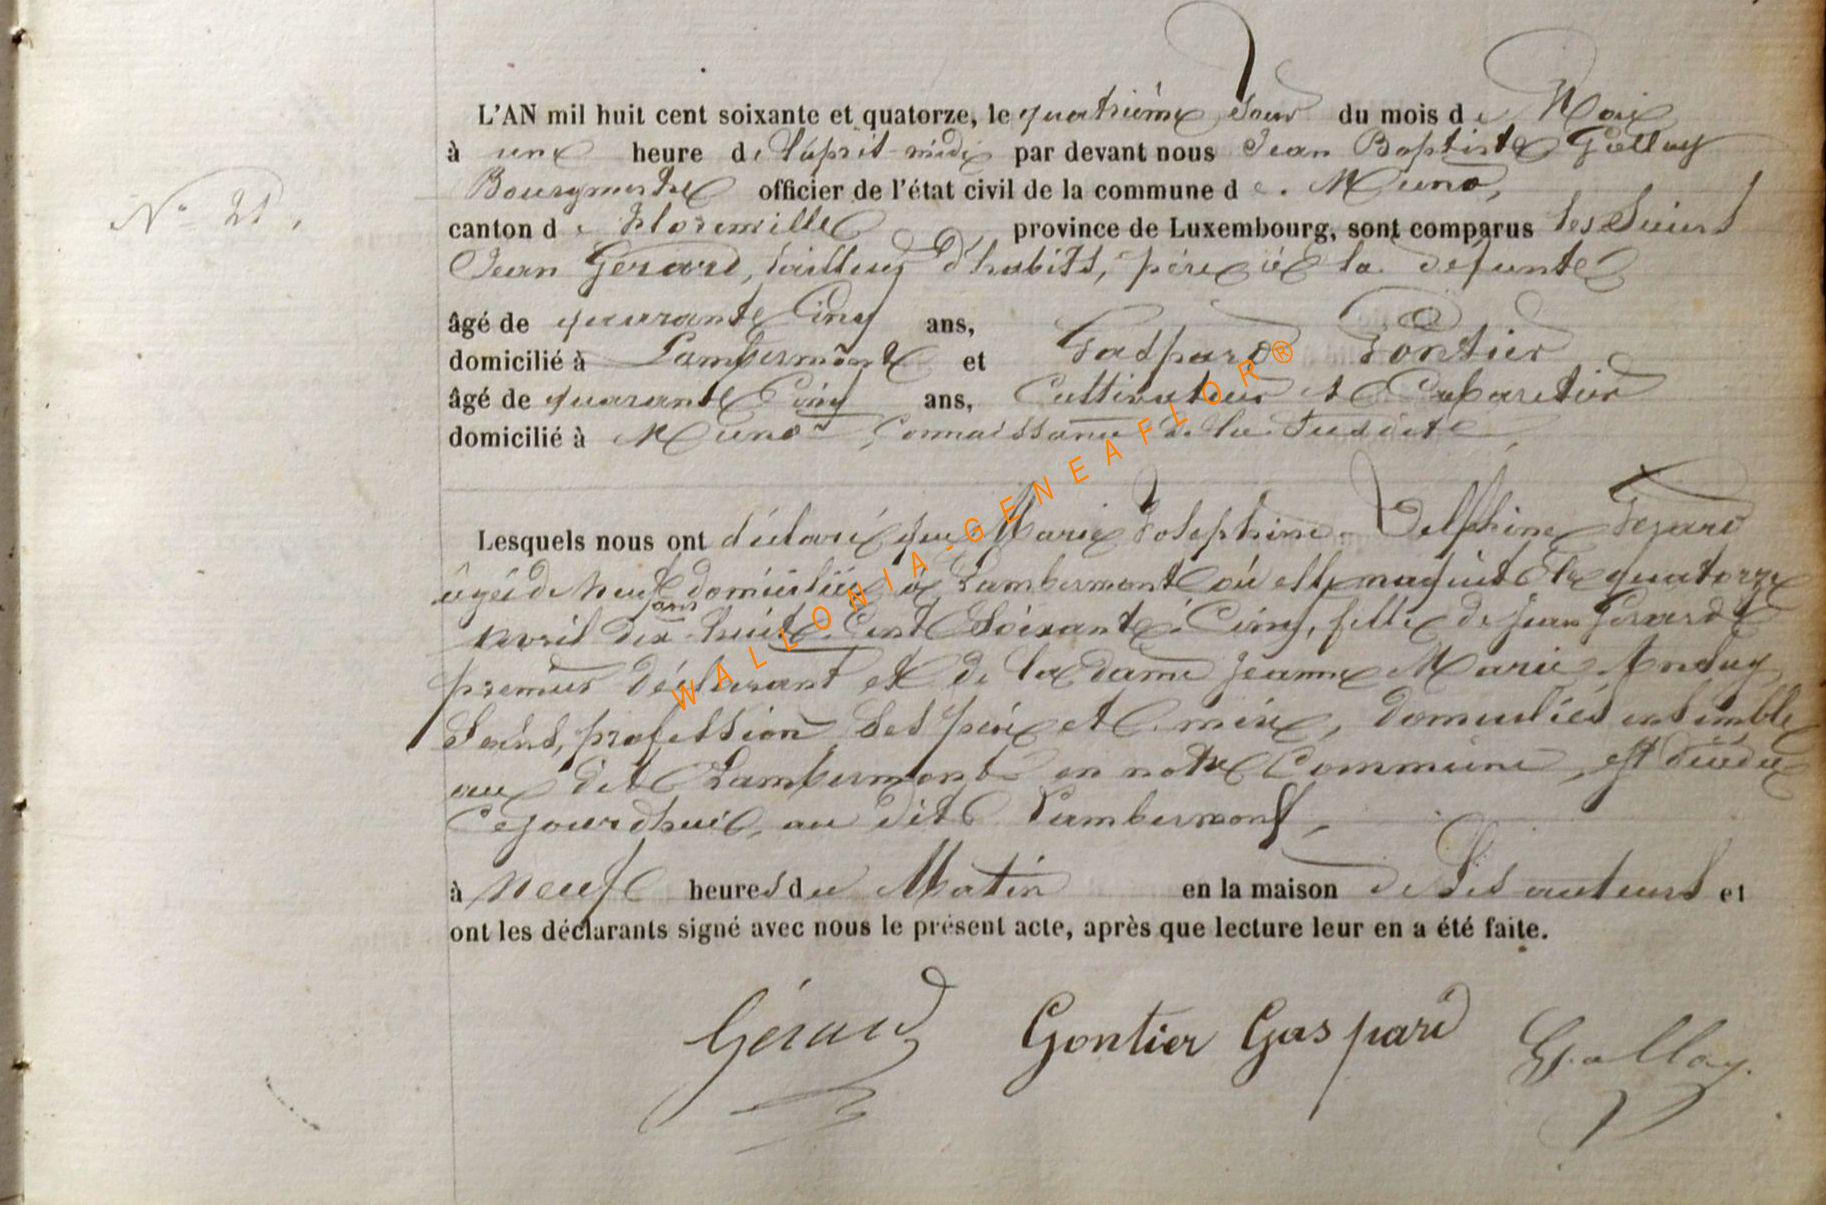 L'AN mil huit cent soixante et quatorze, le quatrième Jour du mois de Mai
à une heure de l'après-midi par devant nous Jean Baptiste Gallay
Bourgmestre officier de l'état civil de la commune de Muno,
N° 21.
canton de Florenville province de Luxembourg, sont comparus les Sieurs
Jean Gérard, tailleur d'habits, père de la défunte
âgé de quarante Cinq ans,
domicilié à Lambermont et Gaspard Gontier
âgé de quarante Cinq ans, Cultivateur et Cabaretier
domicilié à Muno, Connaissance de la Susdite,
Lesquels nous ont déclaré que Marie Josephine Delphine Gerard
âgée de neuf ans domiciliée à Lambermont où elle naquit le quatorze
Avril dix huit Cent Soixante Cinq, fille de Jean Gerard
premier déclarant et de la dame Jeanne Marie
Sans profession, Ses père et mère, domiciliés ensemble
au dit Lambermont en notre Commune, est décédée
Cejourdhui, au dit Lambermont,
à Neuf heures du Matin en la maison de Ses auteurs et
ont les déclarants signé avec nous le présent acte, après que lecture leur en a été faite.
Gérard Gontier Gaspard Gallay
WALLONIA-GENEAFLOR®